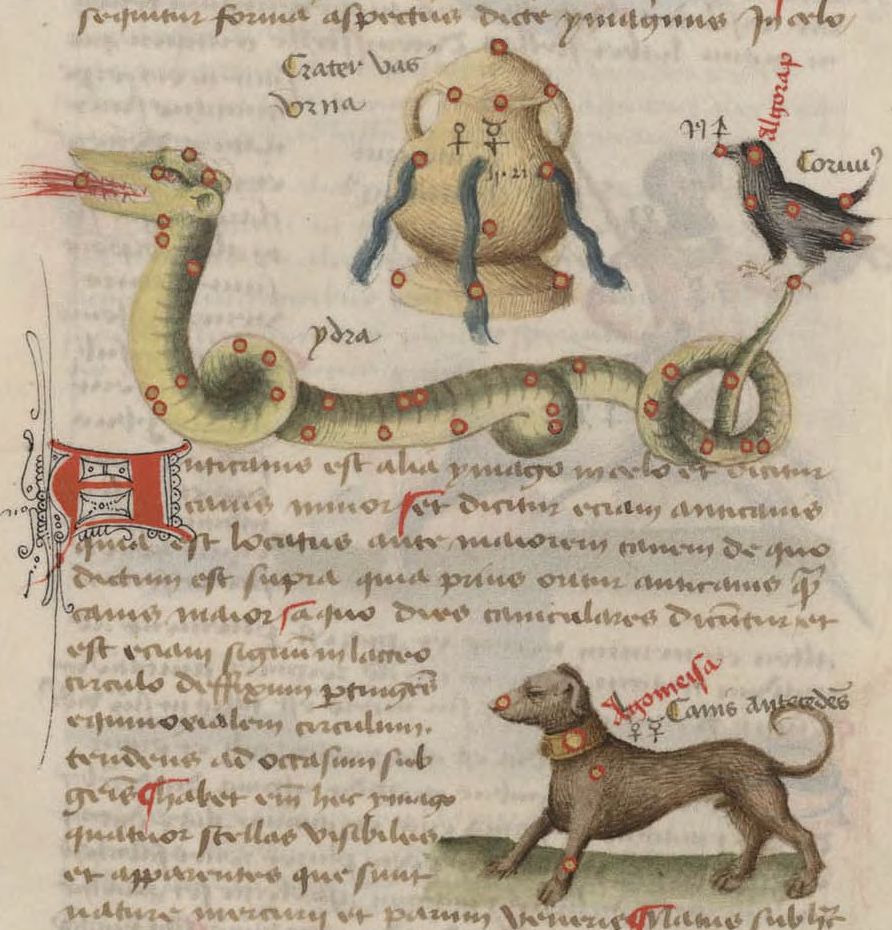 sequitur forma aspectus dicte ymaginis In celo
Crater vas
vrna
Algorap
Coruus
ydra
Anticanis est alia ymago in celo et dicitur
canis minor et dicitur eciam anticanis
quia est locatus ante maiorem canem de quo
dictum est supra quia prius oritur anticanis qua
canis maior a quo dies caniculares dicuntur et
est eciam signum in lacteo
circulo deffixum pertingens
equinoxialem circulum.
tendens ad occasum sub
geis habet eim hec ymago
quatuor stellas visibiles
et apparentes que sunt
nature mercurii et parum veneris Natus sub hac
Algomeisa
Canis Antecedens